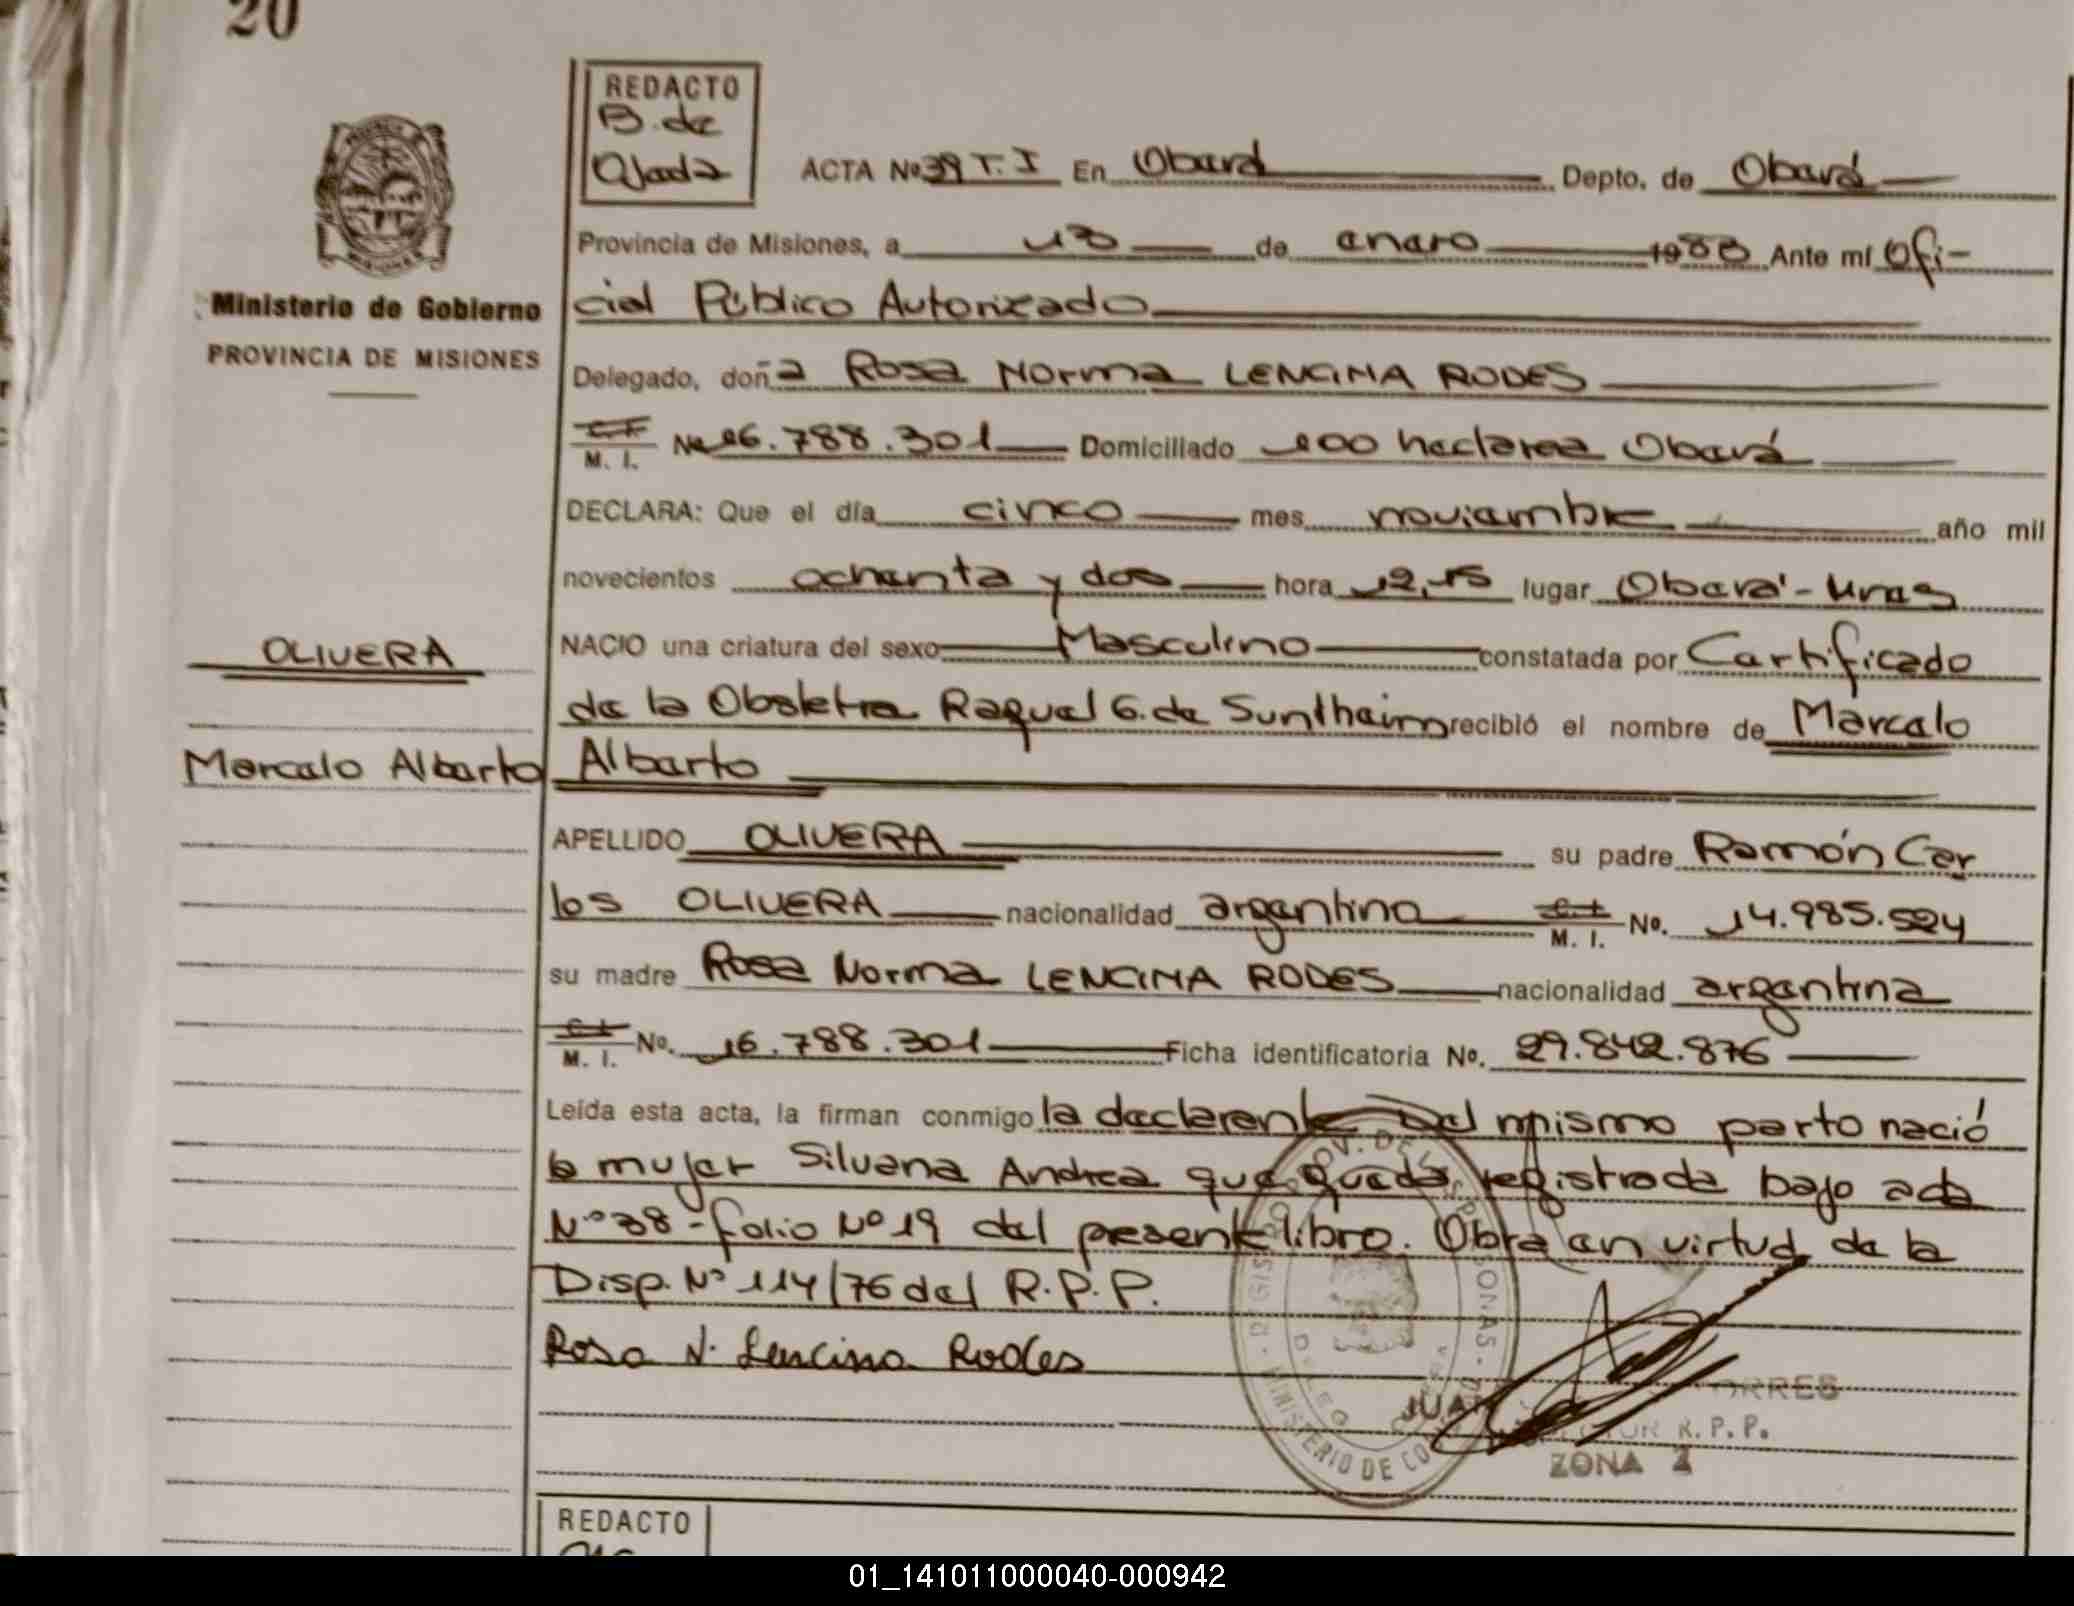 20
REDACTO
B. de
Ojeda
ACTA No 39 T. I En Oberá Depto. de Oberá
Provincia de Misiones, a de enero 1983 Ante mí Ofi-
cial Público Autorizado
Ministerio de Gobierno
PROVINCIA DE MISIONES
Delegado, doña Rosa Norma LENCINA RODES
M. I. No 16.788.301 Domiciliado 100 hectarea Oberá
DECLARA: Que el día cinco mes noviembre año mil
novecientos ochenta y dos hora 12,15 lugar Oberá -
NACIO una criatura del sexo Masculino constatada por Certificado
OLIVERA
de la Obstetra Raquel G. de Suntheim recibió el nombre de Marcelo
Marcelo Alberto
Alberto
APELLIDO OLIVERA su padre Ramón Car
los OLIVERA nacionalidad argentina M. I. No. 14.985.524
su madre Rosa Norma LENCINA RODES nacionalidad argentina
M. I. No. 16.788.301 Ficha identificatoria No. 29.842.876
Leída esta acta, la firman conmigo la declarente Del mismo parto nació
la mujer Silvana Andrea que queda registrada bajo acta
Nº 38 - folio Nº 19 del presente libro. Obra en virtud de la
Disp. Nº 114/76 del R. P. P.
Rosa N. Lencina Rodes
JUAN TORRES
R. P. P.
ZONA 2
REDACTO
01_141011000040-000942